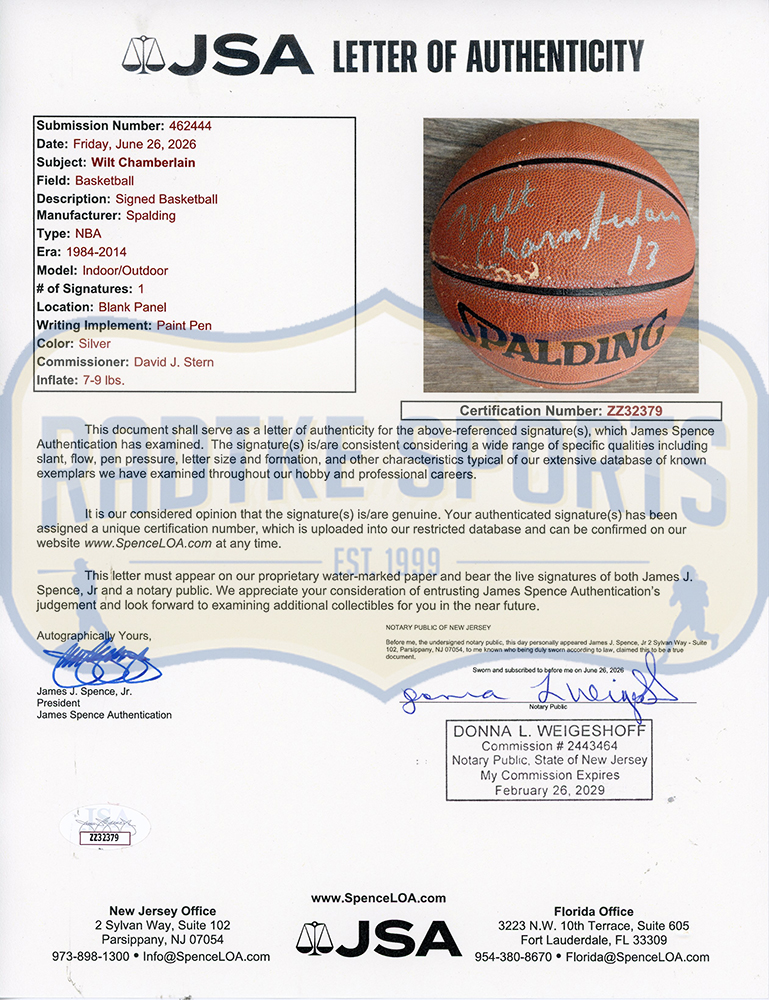 JSA LETTER OF AUTHENTICITY
Submission Number: 462444
Date: Friday, June 26, 2026
Subject: Wilt Chamberlain
Field: Basketball
Description: Signed Basketball
Manufacturer: Spalding
Type: NBA
Era: 1984-2014
Model: Indoor/Outdoor
# of Signatures: 1
Location: Blank Panel
Writing Implement: Paint Pen
Color: Silver
Commissioner: David J. Stern
Inflate: 7-9 lbs.
Wilt
Chamberlain
13
SPALDING
Certification Number: ZZ32379
This document shall serve as a letter of authenticity for the above-referenced signature(s), which James Spence
Authentication has examined. The signature(s) is/are consistent considering a wide range of specific qualities including
slant, flow, pen pressure, letter size and formation, and other characteristics typical of our extensive database of known
exemplars we have examined throughout our hobby and professional careers.
RADTKE SPORTS
It is our considered opinion that the signature(s) is/are genuine. Your authenticated signature(s) has been
assigned a unique certification number, which is uploaded into our restricted database and can be confirmed on our
website www.SpenceLOA.com at any time.
EST. 1999
This letter must appear on our proprietary water-marked paper and bear the live signatures of both James J.
Spence, Jr and a notary public. We appreciate your consideration of entrusting James Spence Authentication's
judgement and look forward to examining additional collectibles for you in the near future.
Autographically Yours,
James J. Spence, Jr.
President
James Spence Authentication
NOTARY PUBLIC OF NEW JERSEY
Before me, the undersigned notary public, this day personally appeared James J. Spence, Jr 2 Sylvan Way - Suite
102, Parsippany, NJ 07054, to me known who being duly sworn according to law, claimed this to be a true
document.
Sworn and subscribed to before me on June 26, 2026
Donna L Weigeshoff
Notary Public
DONNA L. WEIGESHOFF
Commission # 2443464
Notary Public, State of New Jersey
My Commission Expires
February 26, 2029
JSA
ZZ32379
www.SpenceLOA.com
New Jersey Office
2 Sylvan Way, Suite 102
Parsippany, NJ 07054
973-898-1300 • Info@SpenceLOA.com
JSA
Florida Office
3223 N.W. 10th Terrace, Suite 605
Fort Lauderdale, FL 33309
954-380-8670 • Florida@SpenceLOA.com